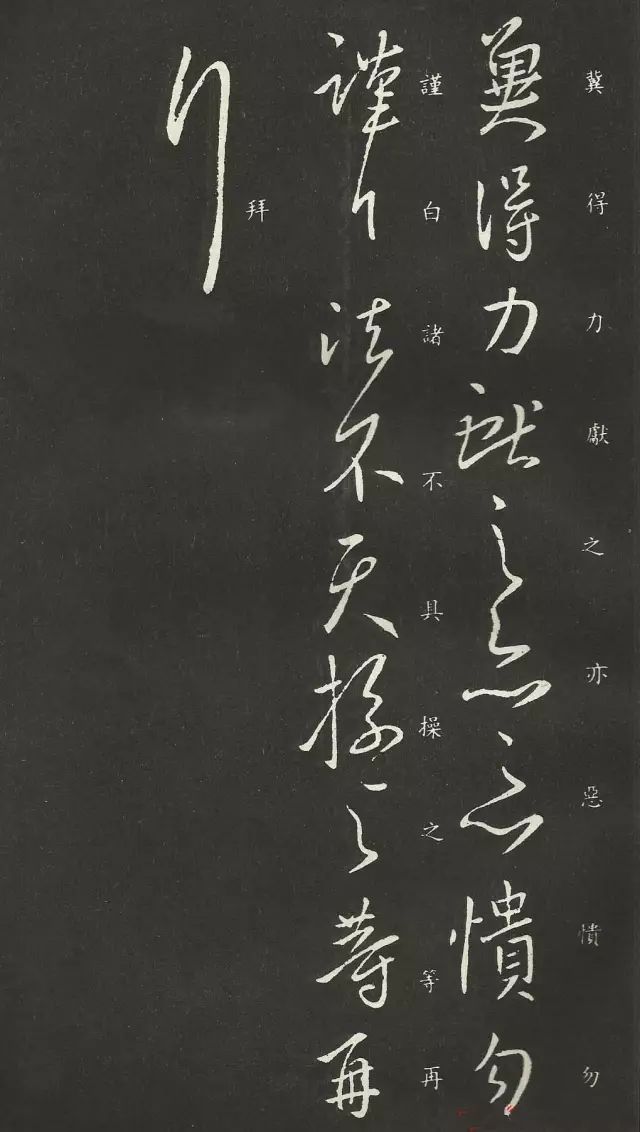 冀得力獻之亦惡憒勿
謹白諸不具操之等再
拜